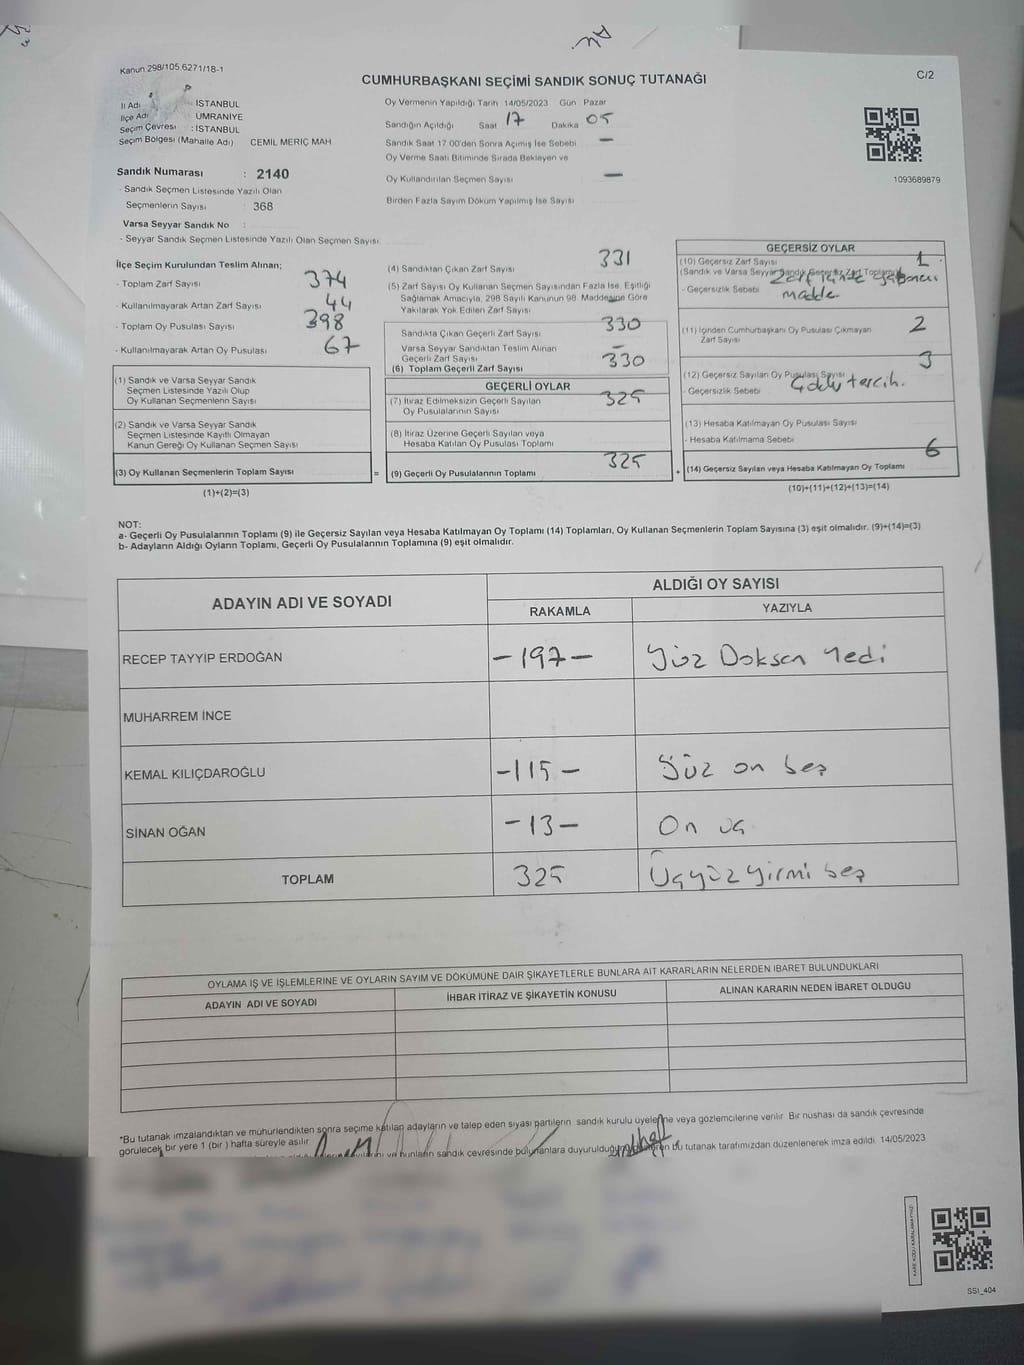 Kanun 298/105.6271/18-1
CUMHURBAŞKANI SEÇİMİ SANDIK SONUÇ TUTANAĞI
C/2
İl Adı İSTANBUL
İlçe Adı ÜMRANİYE
Seçim Çevresi : İSTANBUL
Seçim Bölgesi (Mahalle Adı) CEMİL MERİÇ MAH
Sandık Numarası : 2140
- Sandık Seçmen Listesinde Yazılı Olan
Seçmenlerin Sayısı 368
Varsa Seyyar Sandık No :
- Seyyar Sandık Seçmen Listesinde Yazılı Olan Seçmen Sayısı:
Oy Vermenin Yapıldığı Tarih 14/05/2023 Gün Pazar
Sandığın Açıldığı Saat 17 Dakika 05
Sandık Saat 17 00'den Sonra Açılmış İse Sebebi —
Oy Verme Saati Bitiminde Sırada Bekleyen ve
Oy Kullandırılan Seçmen Sayısı —
Birden Fazla Sayım Döküm Yapılmış İse Sayısı
1093689879
İlçe Seçim Kurulundan Teslim Alınan;
- Toplam Zarf Sayısı 374
- Kullanılmayarak Artan Zarf Sayısı 44
- Toplam Oy Pusulası Sayısı 398
- Kullanılmayarak Artan Oy Pusulası 67
(1) Sandık ve Varsa Seyyar Sandık
Seçmen Listesinde Yazılı Olup
Oy Kullanan Seçmenlerin Sayısı
(2) Sandık ve Varsa Seyyar Sandık
Seçmen Listesinde Kayıtlı Olmayan
Kanun Gereği Oy Kullanan Seçmen Sayısı
(3) Oy Kullanan Seçmenlerin Toplam Sayısı =
(1)+(2)=(3)
(4) Sandıktan Çıkan Zarf Sayısı 331
(5) Zarf Sayısı Oy Kullanan Seçmen Sayısından Fazla İse, Eşitliği
Sağlamak Amacıyla, 298 Sayılı Kanunun 98. Maddesine Göre
Yakılarak Yok Edilen Zarf Sayısı
Sandıkta Çıkan Geçerli Zarf Sayısı 330
Varsa Seyyar Sandıktan Teslim Alınan
Geçerli Zarf Sayısı —
(6) Toplam Geçerli Zarf Sayısı 330
GEÇERLİ OYLAR
(7) İtiraz Edilmeksizin Geçerli Sayılan
Oy Pusulalarının Sayısı 325
(8) İtiraz Üzerine Geçerli Sayılan veya
Hesaba Katılan Oy Pusulası Toplamı
(9) Geçerli Oy Pusulalarının Toplamı 325 +
GEÇERSİZ OYLAR
(10) Geçersiz Zarf Sayısı 1
(Sandık ve Varsa Seyyar Sandık Geçersiz Zarf Toplamı)
- Geçersizlik Sebebi Zarf içinde yabancı
madde
(11) İçinden Cumhurbaşkanı Oy Pusulası Çıkmayan
Zarf Sayısı 2
(12) Geçersiz Sayılan Oy Pusulası Sayısı 3
- Geçersizlik Sebebi Çoklu tercih.
(13) Hesaba Katılmayan Oy Pusulası Sayısı
- Hesaba Katılmama Sebebi
(14) Geçersiz Sayılan veya Hesaba Katılmayan Oy Toplamı 6
(10)+(11)+(12)+(13)=(14)
NOT:
a- Geçerli Oy Pusulalarının Toplamı (9) ile Geçersiz Sayılan veya Hesaba Katılmayan Oy Toplamı (14) Toplamları, Oy Kullanan Seçmenlerin Toplam Sayısına (3) eşit olmalıdır. (9)+(14)=(3)
b- Adayların Aldığı Oyların Toplamı, Geçerli Oy Pusulalarının Toplamına (9) eşit olmalıdır.
ADAYIN ADI VE SOYADI
ALDIĞI OY SAYISI
RAKAMLA YAZIYLA
RECEP TAYYİP ERDOĞAN -197- Yüz Doksan Yedi
MUHARREM İNCE
KEMAL KILIÇDAROĞLU -115- Yüz on beş
SİNAN OĞAN -13- On üç
TOPLAM 325 Üçyüz yirmi beş
OYLAMA İŞ VE İŞLEMLERİNE VE OYLARIN SAYIM VE DÖKÜMÜNE DAİR ŞİKAYETLERLE BUNLARA AİT KARARLARIN NELERDEN İBARET BULUNDUKLARI
ADAYIN ADI VE SOYADI İHBAR İTİRAZ VE ŞİKAYETİN KONUSU ALINAN KARARIN NEDEN İBARET OLDUĞU
*Bu tutanak imzalandıktan ve mühürlendikten sonra seçime katılan adayların ve talep eden siyasi partilerin sandık kurulu üyelerine veya gözlemcilerine verilir. Bir nüshası da sandık çevresinde
görülecek bir yere 1 (bir) hafta süreyle asılır
ve bunların sandık çevresinde bulunanlara duyurulduğu bu tutanak tarafımızdan düzenlenerek imza edildi. 14/05/2023
SSI_404